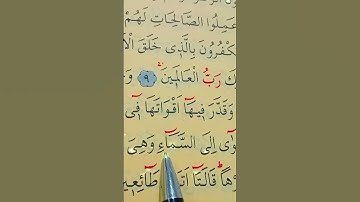 عَمِلُوا الصَّالِحَاتِ لَهُمْ
كْفُرُونَ بِالَّذ۪ي خَلَقَ الْاَ
كَ رَبُّ الْعَالَم۪ينَۚ ﴿٩﴾ وَجَ
وَقَدَّرَ ف۪يهَٓا اَقْوَاتَهَا ف۪ٓي
وٰٓى اِلَى السَّمَٓاءِ وَهِيَ
هاًۜ قَالَتَٓا طَٓائِع۪ينَ